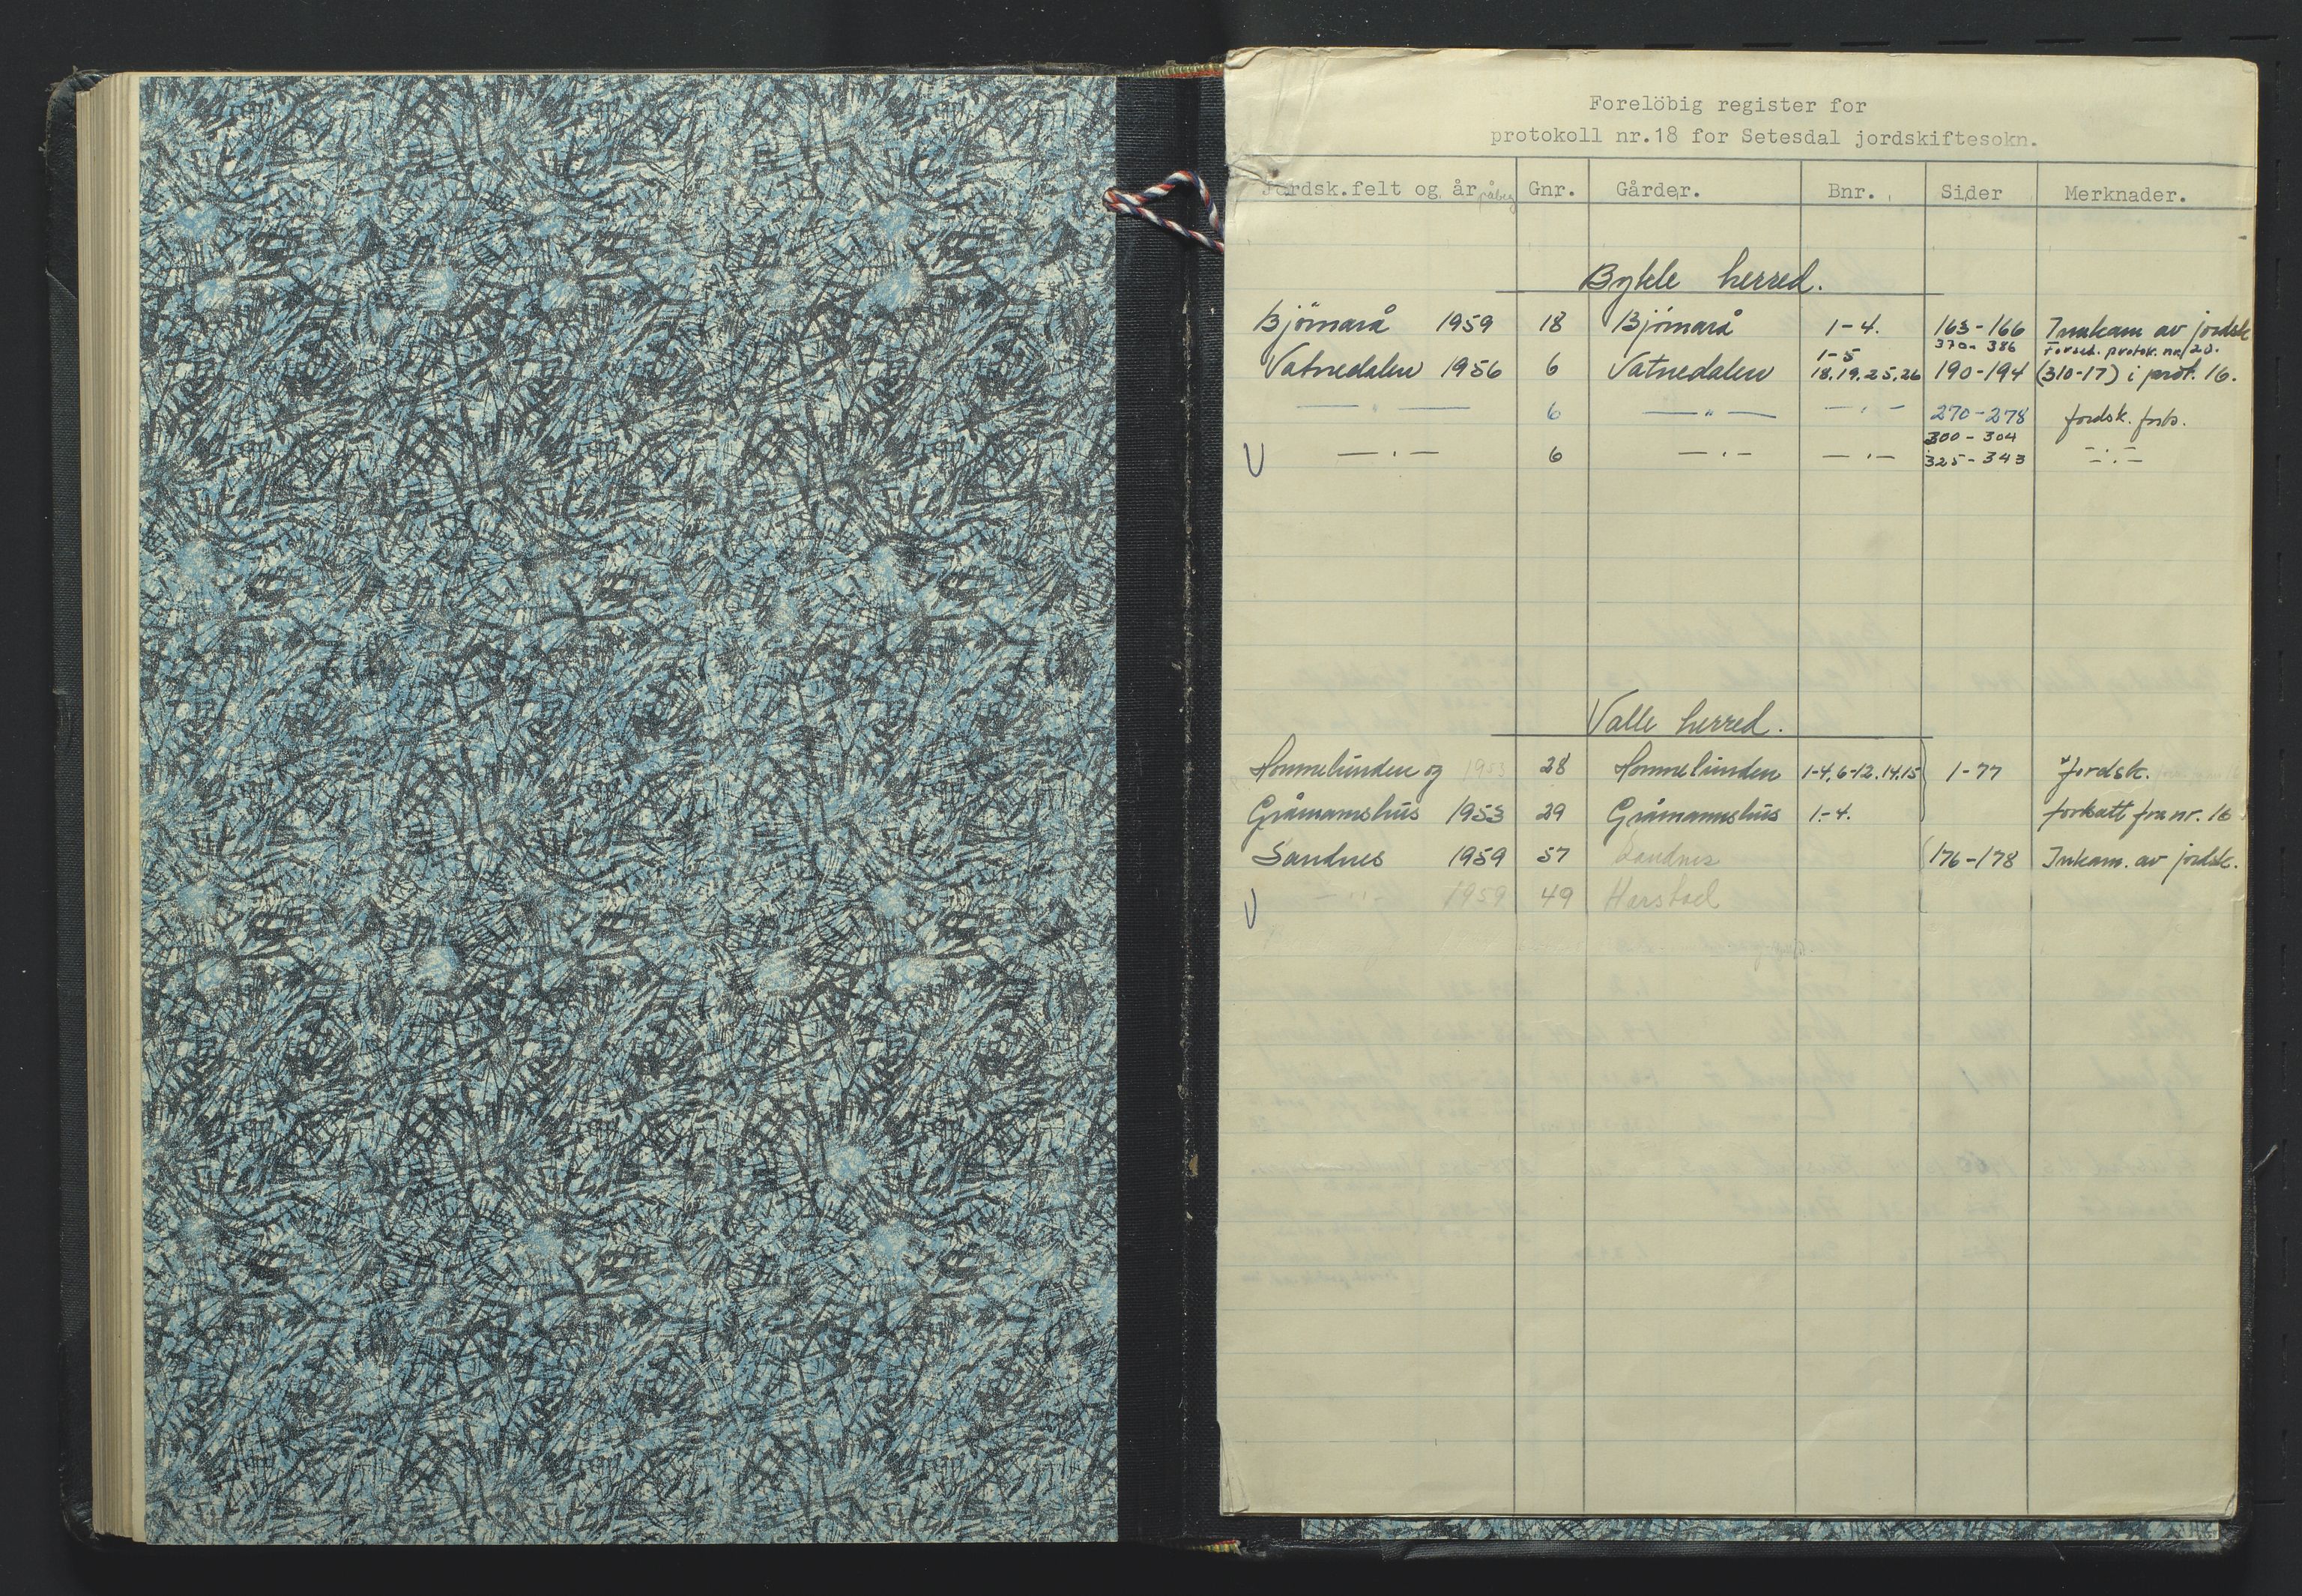 Forelöbig register for
protokoll nr.18 for Setesdal jordskiftesokn.
Jordsk.felt og år påbeg Gnr. Gårder. Bnr. Sider Merknader.
Bykle herred.
Björnarå 1959 18 Björnarå 1-4. 163-166 Innkam av jordsk
370-386 Forts. protok. nr. 20.
1-5
Vatnedalen 1956 6 Vatnedalen 18,19,25,26 190-194 (310-17) i prot. 16.
— " — 6 — " — — " — 270-278 jordsk. forts.
300-304
V — " — 6 — " — — " — 325-343 — " —
Valle herred.
Hommelunden og 1953 28 Hommelunden 1-4,6-12,14,15 1-77 Jordsk.
Gråmannshus 1953 29 Gråmannshus 1-4. fortsatt fra nr. 16
Sandnes 1959 57 Sandnes 176-178 Inkam. av jordsk.
V — " — 1959 49 Harstad